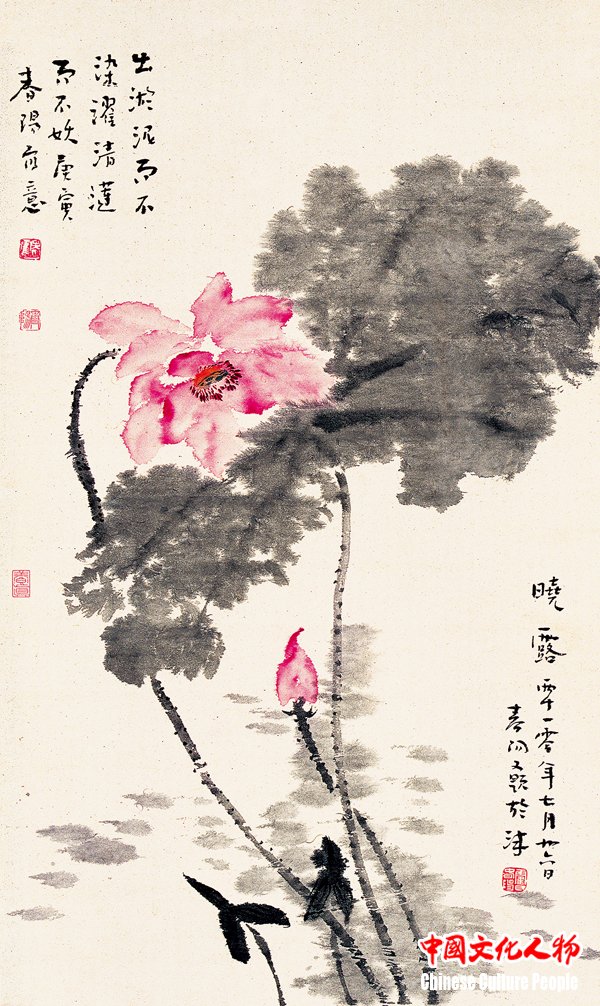 出淤泥而不
染濯清漣
而不妖庚寅
春陽寫意
曉露 一零年七月廿六日
春陽又題於
中國文化人物
Chinese Culture People